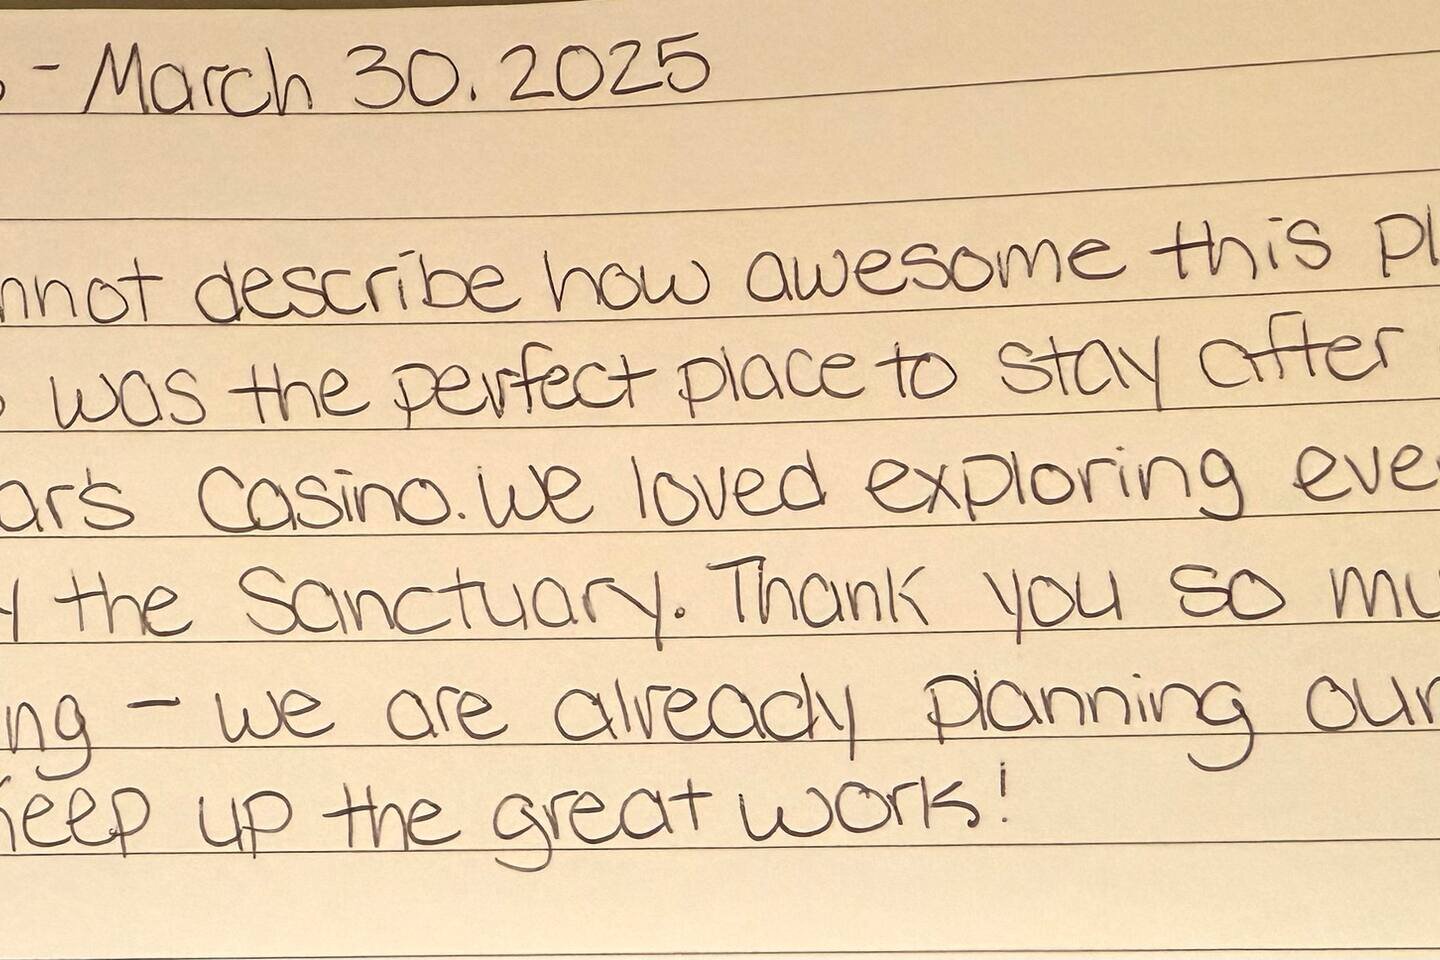 - March 30. 2025
nnot describe how awesome this pl
was the perfect place to stay after
ar's Casino. We loved exploring eve
y the Sanctuary. Thank you so mu
ng - we are already planning our
Keep up the great work!